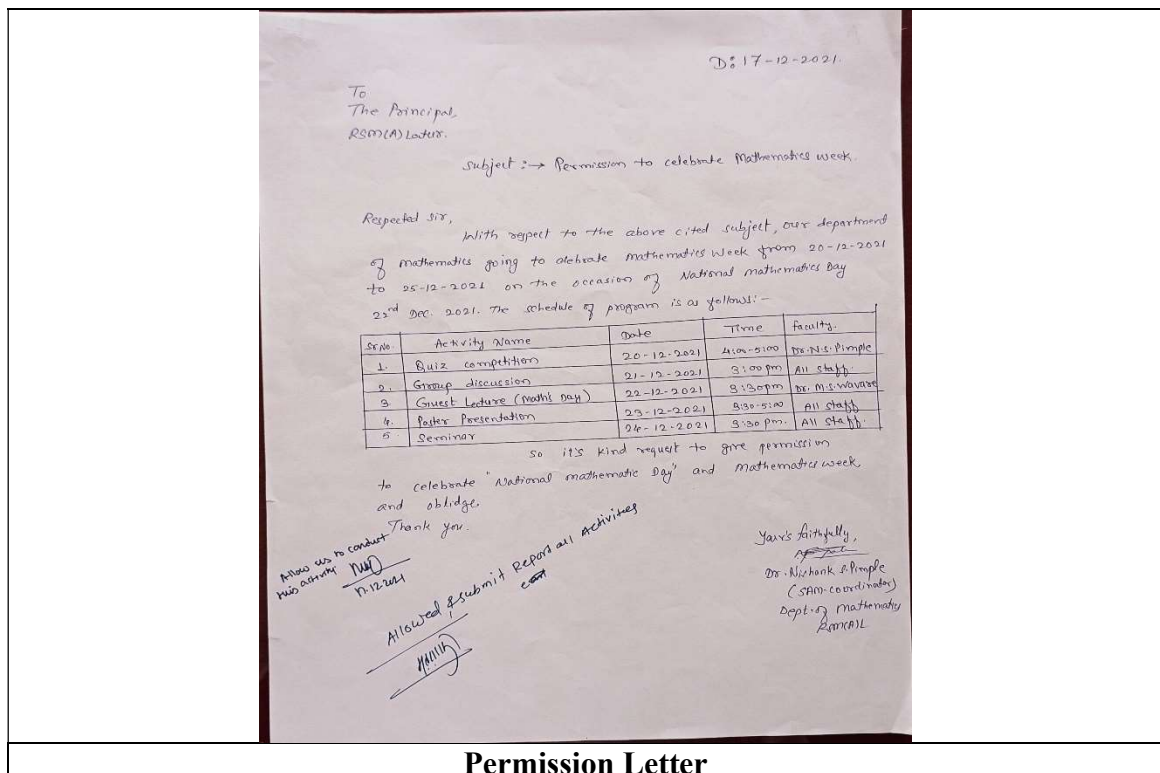 D: 17-12-2021.
To
The Principal,
RSM(A) Latur.
Subject :→ Permission to celebrate Mathematics week.
Respected Sir,
With respect to the above cited subject, our department
of mathematics going to celebrate Mathematics Week from 20-12-2021
to 25-12-2021 on the occasion of National mathematics Day
22nd Dec. 2021. The schedule of program is as follows:-
Sr.No. Activity Name Date Time faculty.
1. Quiz competition 20-12-2021 4:00-5:00 Dr. N.S. Pimple
2. Group discussion 21-12-2021 3:00pm All staff.
3 Guest Lecture (Math's Day) 22-12-2021 3:30pm Dr. M.S. Wavare
4. Poster Presentation 23-12-2021 3:30-5:00 All staff
5 Seminar 24-12-2021 3:30 pm. All staff.
so it's kind request to give permission
to celebrate "National mathematic Day" and mathematics week
and oblidge.
Thank you.
Allow us to conduct
this activity
17.12.2021
Allowed & submit Report all Activities
Your's faithfully,
Dr. Nishank S. Pimple
(SAM-coordinator)
Dept. of mathematics
RSM(A)L
Permission Letter